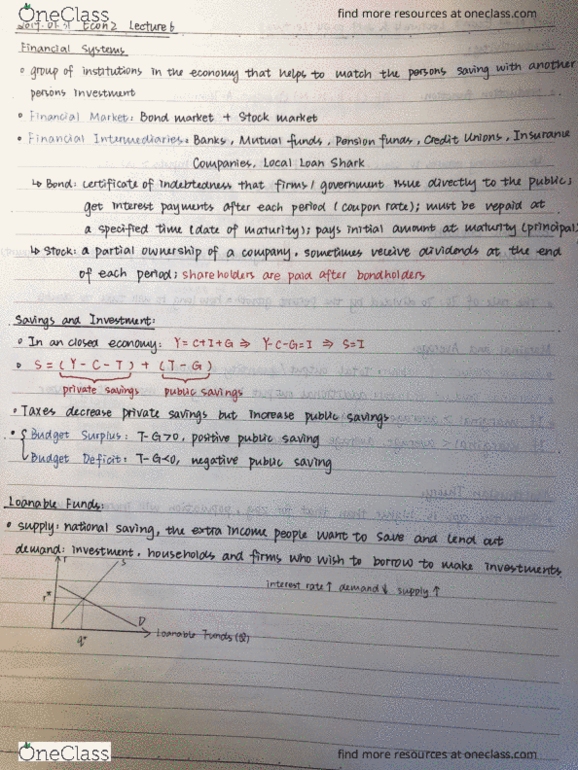 OneClass
find more resources at oneclass.com
Econ 2 Lecture 6
Financial Systems
• group of institutions in the economy that helps to match the persons saving with another
persons investment
• Financial Market: Bond market + Stock market
• Financial Intermediaries: Banks, Mutual funds, Pension funds, Credit Unions, Insurance
Companies, Local Loan Shark
↳ Bond: certificate of indebtedness that firms / government issue directly to the public;
get interest payments after each period (coupon rate); must be repaid at
a specified time (date of maturity); pays initial amount at maturity (principal)
↳ Stock: a partial ownership of a company, sometimes receive dividends at the end
of each period; shareholders are paid after bondholders
Savings and Investment:
• In an closed economy: Y = C+I+G ⇒ Y-C-G=I ⇒ S=I
• S = (Y - C - T) + (T - G)
private savings public savings
• Taxes decrease private savings but increase public savings
• { Budget Surplus: T-G>0, positive public saving
Budget Deficit: T-G<0, negative public saving
Loanable Funds:
• supply: national saving, the extra income people want to save and lend out
demand: investment, households and firms who wish to borrow to make investments
r S
interest rate ↑ demand ↓ supply ↑
r*
D
Loanable Funds ($)
q*
OneClass
find more resources at oneclass.com